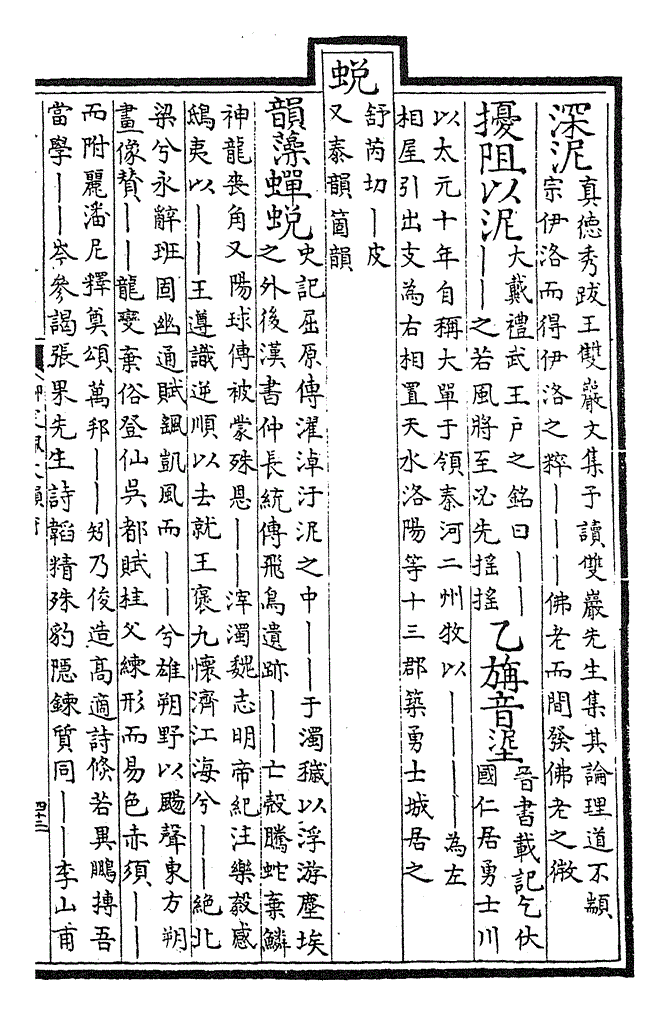 深泥
真德秀跋王雙巖文集予讀雙巖先生集其論理道不顓
宗伊洛而得伊洛之粹———佛老而間發佛老之微
擾阻以泥
大戴禮武王戶之銘曰——
——之若風將至必先搖搖
乙旃音埿
晉書載記乞伏
國仁居勇士川
以太元十年自稱大單于領秦河二州牧以————為左
相屋引出支為右相置天水洛陽等十三郡築勇士城居之
蜕
舒芮切—皮
又泰韻箇韻
韻藻蟬蜕
史記屈原傳濯淖汙泥之中——于濁穢以浮游塵埃
之外後漢書仲長統傳飛鳥遺跡——亡殼騰蛇棄鱗
神龍喪角又陽球傳被蒙殊恩——滓濁魏志明帝紀注樂毅感
鴟夷以——王遵識逆順以去就王褒九懷濟江海兮——絕北
梁兮永辭班固幽通賦飊凱風而——兮雄朔野以颺聲東方朔
畫像贊——龍變棄俗登仙吳都賦桂父練形而易色赤須——
而附麗潘尼釋奠頌萬邦——矧乃俊造高適詩倐若異鵬摶吾
當學——岑參謁張果先生詩韜精殊豹隱鍊質同——李山甫